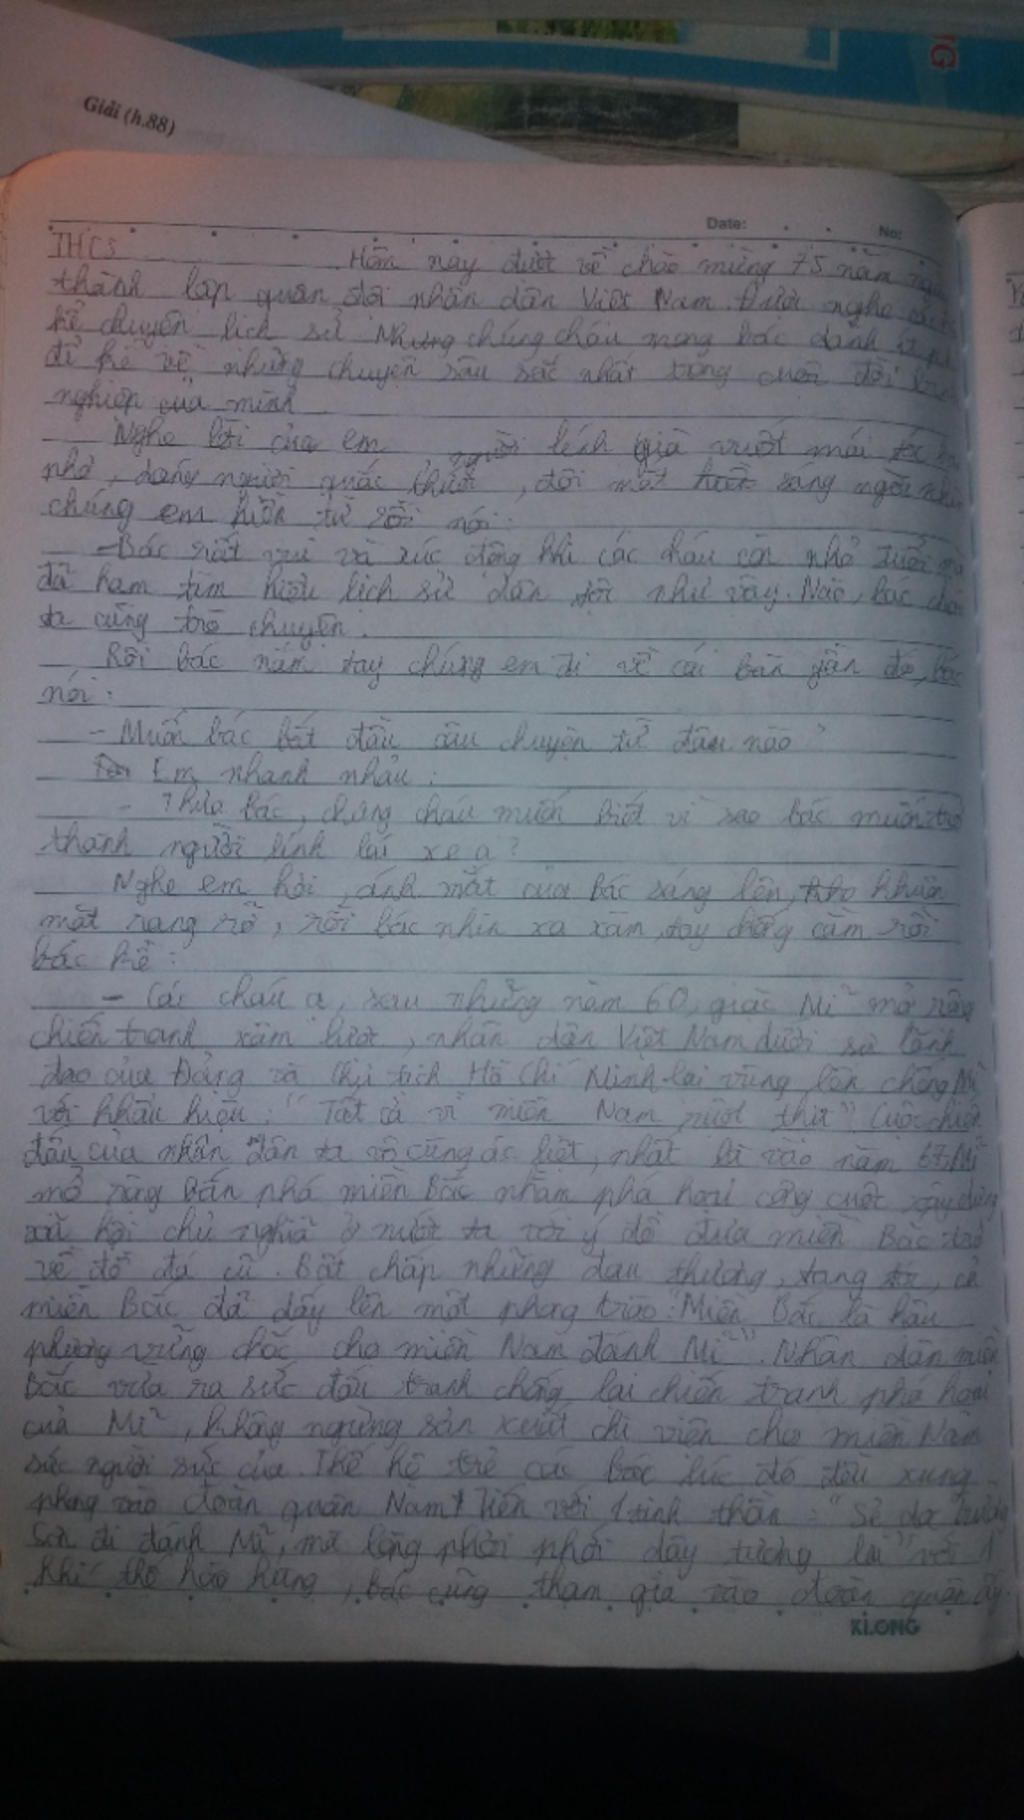 NG
Giải (h.88)
Date: No:
THCS Hôm nay được về chào mừng 75 năm
thành lập quân đội nhân dân Việt Nam. Được nghe
kể chuyện lịch sử. Nhưng chúng cháu mong bác dành ít
để kể về những chuyện sâu sắc nhất trong cuộc đời
nghiệp của mình
Nghe lời của em người lính già vuốt mái tóc
nhỏ, dáng người quắc thước, đôi mắt sáng ngời nhìn
chúng em hiền từ rồi nói:
- Bác rất vui và xúc động khi các cháu còn nhỏ tuổi mà
đã ham tìm hiểu lịch sử dân tộc như vậy. Nào, bác cháu
ta cùng trò chuyện.
Rồi bác nắm tay chúng em đi về cái bàn gần đó, bác
nói:
- Muốn bác bắt đầu câu chuyện từ đâu nào?
Em nhanh nhảu:
- Thưa bác, chúng cháu muốn biết vì sao bác muốn trở
thành người lính lái xe ạ?
Nghe em hỏi, ánh mắt của bác sáng lên, khuôn
mặt rạng rỡ, rồi bác nhìn xa xăm, tay chống cằm rồi
bác kể:
- Các cháu ạ, sau những năm 60, giặc Mĩ mở rộng
chiến tranh xâm lược, nhân dân Việt Nam dưới sự lãnh
đạo của Đảng và Chủ tịch Hồ Chí Minh lại vùng lên chống Mĩ
với khẩu hiệu: "Tất cả vì miền Nam ruột thịt". Cuộc chiến
đấu của nhân dân ta vô cùng ác liệt, nhất là vào năm 67, Mĩ
mở rộng bắn phá miền Bắc nhằm phá hoại công cuộc xây dựng
xã hội chủ nghĩa ở nước ta với ý đồ đưa miền Bắc trở
về đồ đá cũ. Bất chấp những đau thương, tang tóc, cả
miền Bắc đã dấy lên một phong trào: "Miền Bắc là hậu
phương vững chắc cho miền Nam đánh Mĩ". Nhân dân miền
Bắc vừa ra sức đấu tranh chống lại chiến tranh phá hoại
của Mĩ, không ngừng sản xuất chi viện cho miền Nam
sức người sức của. Thế hệ trẻ các bác lúc đó đều xung
phong vào đoàn quân Nam Tiến với 1 tinh thần: "Sẻ dọc Trường
Sơn đi đánh Mĩ, mà lòng phơi phới dậy tương lai" với 1
khí thế hào hùng, bác cũng tham gia vào đoàn quân ấy.
KLONG